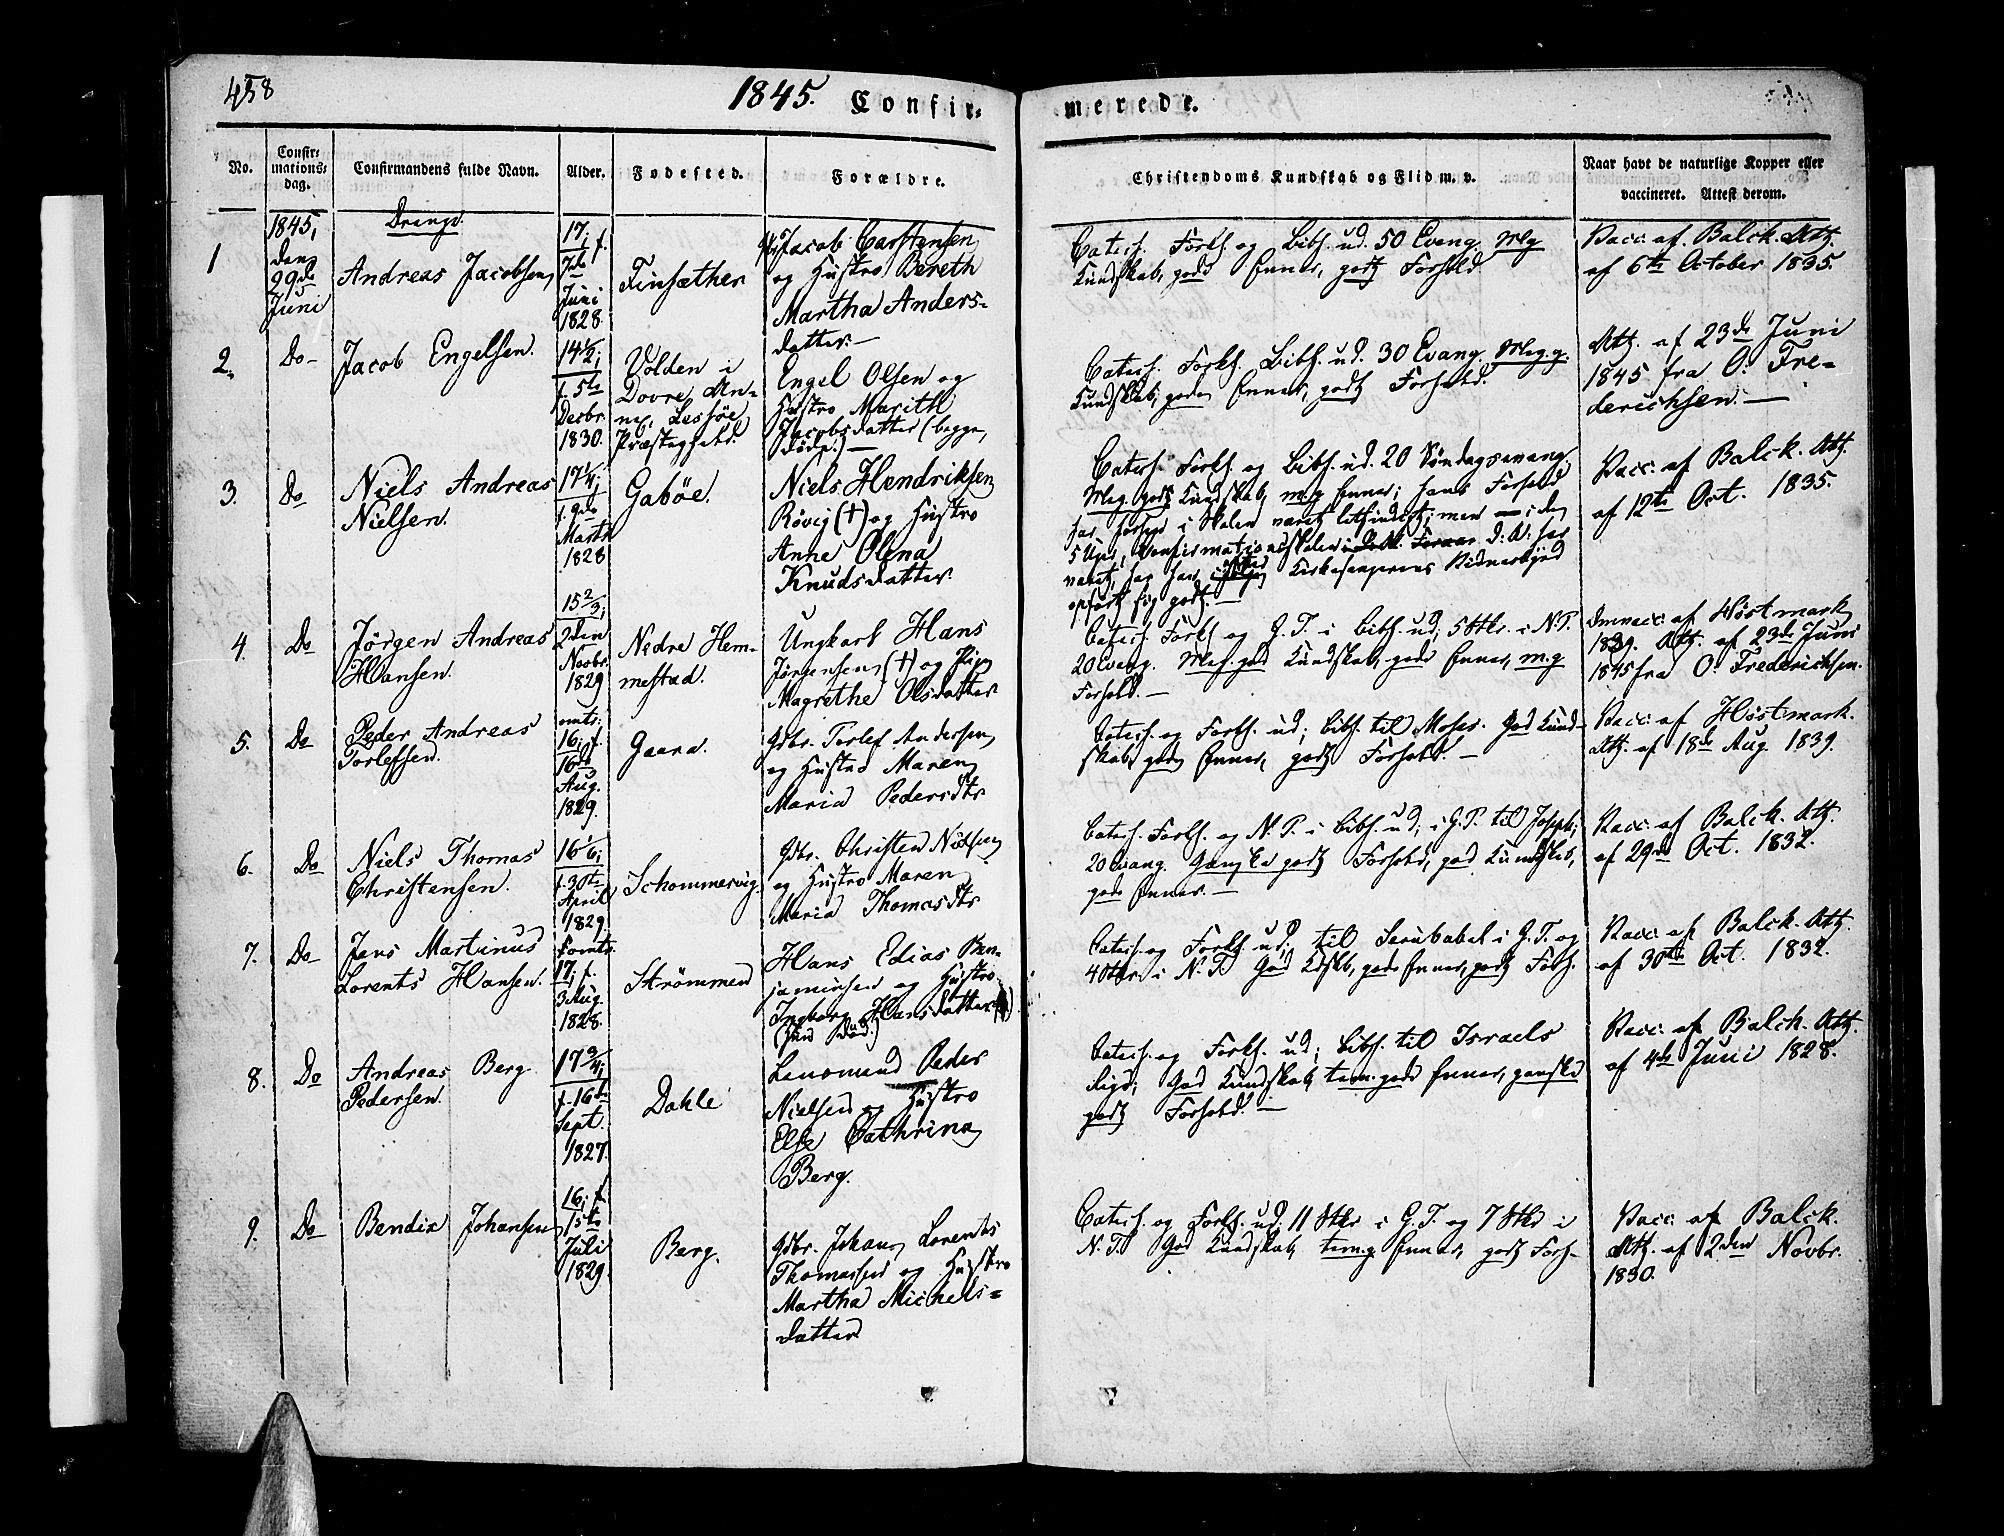 458
1845. Confir-
merede.
No.
Confir-
mations-
dag.
Confirmandens fulde Navn.
Alder.
Fødested.
Forældre.
Christendoms Kundskab og Flid m. v.
Naar havt de naturlige Kopper eller
vaccineret. Attest derom.
1
1845,
den
29de
Juni
Drenge.
Andreas Jacobsen
17; f.
7de
Juni
1828
Finsæther
Jacob Carstensen
og Hustro Bereth
Martha Anders-
datter. —
Catech. Forkl. og Bibh. ud. 50 Evang. Mg
Kundskab, gode Evner, godt Forhold.
Vacc. af Balck. Att.
af 6te October 1835.
2.
Do —
Jacob Engelsen.
14½;
f. 5te
Decbr.
1830.
Volden i
Dovre An-
nex, Lessøe
Præstegjeld.
Engel Olsen og
Hustro Marith
Jacobsdatter (begge
døde.) —
Catech. Forkl. Bibh. ud. 30 Evang. Meg. g.
Kundskab, gode Evner, godt Forhold.
Att. af 23de Juni
1845 fra O. Fre-
derichsen. —
3.
Do
Niels Andreas
Nielsen.
17¼;
f. 9de
Marth
1828
Gabøe.
Niels Hendriksen
Røvig (†) og Hustro
Anne Olena
Knudsdatter.
Catech. Forkl. og Bibh. ud. 20 Søndagsevang.
Meg godt Kundskab, m. g Evner; hans Forhold
har forhen i Skolen været letsindigt; men — i den
5 Uger, Confirmationsskolen D. V. har
varet, har han Kirkesangerens Vidnesbyrd
opført sig godt. —
Vacc. af Balck. Att.
af 12te Oct. 1835.
4.
Do
Jørgen Andreas
Hansen.
15⅔;
2den
Novbr.
1829
Nedre Hem-
mestad.
Ungkarl Hans
Jørgensen (†) og Pige
Magrethe Olsdatter
Catech. Forkl. og G. T. i Bibh. ud; 5 Stkr. i N. T.
20 Evang. Meg. god Kundskab, gode Evner, m. g
Forhold. —
vacc. af Høstmark
1839. Att. af 23de Juni
1845 fra O. Frederichsen.
5.
Do
Peder Andreas
Torlefsen.
omtr.
16; f.
16de
Aug.
1829.
Gaara.
Gdbr. Torlef Andersen
og Hustro Maren
Maria Pedersdtr
Catech. og Forkl. ud; Bibh. til Moses. God Kund-
skab, gode Evner, godt Forhold. —
Vacc. af Høstmark.
Att. af 18de Aug 1839.
6.
Do
Niels Thomas
Christensen.
16⅙;
f. 30te
April
1829
Schommervig.
Gdbr. Christen Nielsen
og Hustro Maren
Maria Thomasdtr
Catech. Forkl. og N. T. i Bibh. ud; i G. T. til Joseph;
20 Evang. Ganske godt Forhold, god Kundskab,
gode Evner. —
Vacc. af Balck. Att.
af 29de Oct. 1832.
7.
Do
Jens Martinus
Lorents Hansen.
omtr.
17; f.
3 Aug.
1828.
Strømmen
Hans Edias Ben-
jaminsen og Hustro
Ingeborg Hansdatter
(hun død.)
Catech. og Forkl. ud; til Serubabel i G. T. og
4 Stkr. i N. T. God Kdskb, gode Evner, godt Forh.
Vacc. af Balck. Att.
af 30te Oct. 1832.
8.
Do
Andreas Berg
Pedersen.
17¾;
f. 16de
Sept.
1827.
Dahle
Lensmand Peder
Nielsen og Hustro
Else Cathrina
Berg.
Catech. og Forkl. ud; Bibh. til Israels
Rige; God Kundskab, tem. gode Evner, ganske
godt Forhold. —
Vacc. af Balck. Att.
af 4de Juni 1828.
9.
Do
Bendix Johansen
16; f.
15te
Juli
1829
Berg.
Gdbr. Johan Lorents
Thomassen og Hustro
Martha Michels-
datter
Catech. og Forkl. ud. 11 Stkr i G. T. og 7 Stkr i
N. T. God Kundskab, tem. g Evner, godt Forh-
Vacc. af Balck.
Att. af 2den Novbr.
1830.